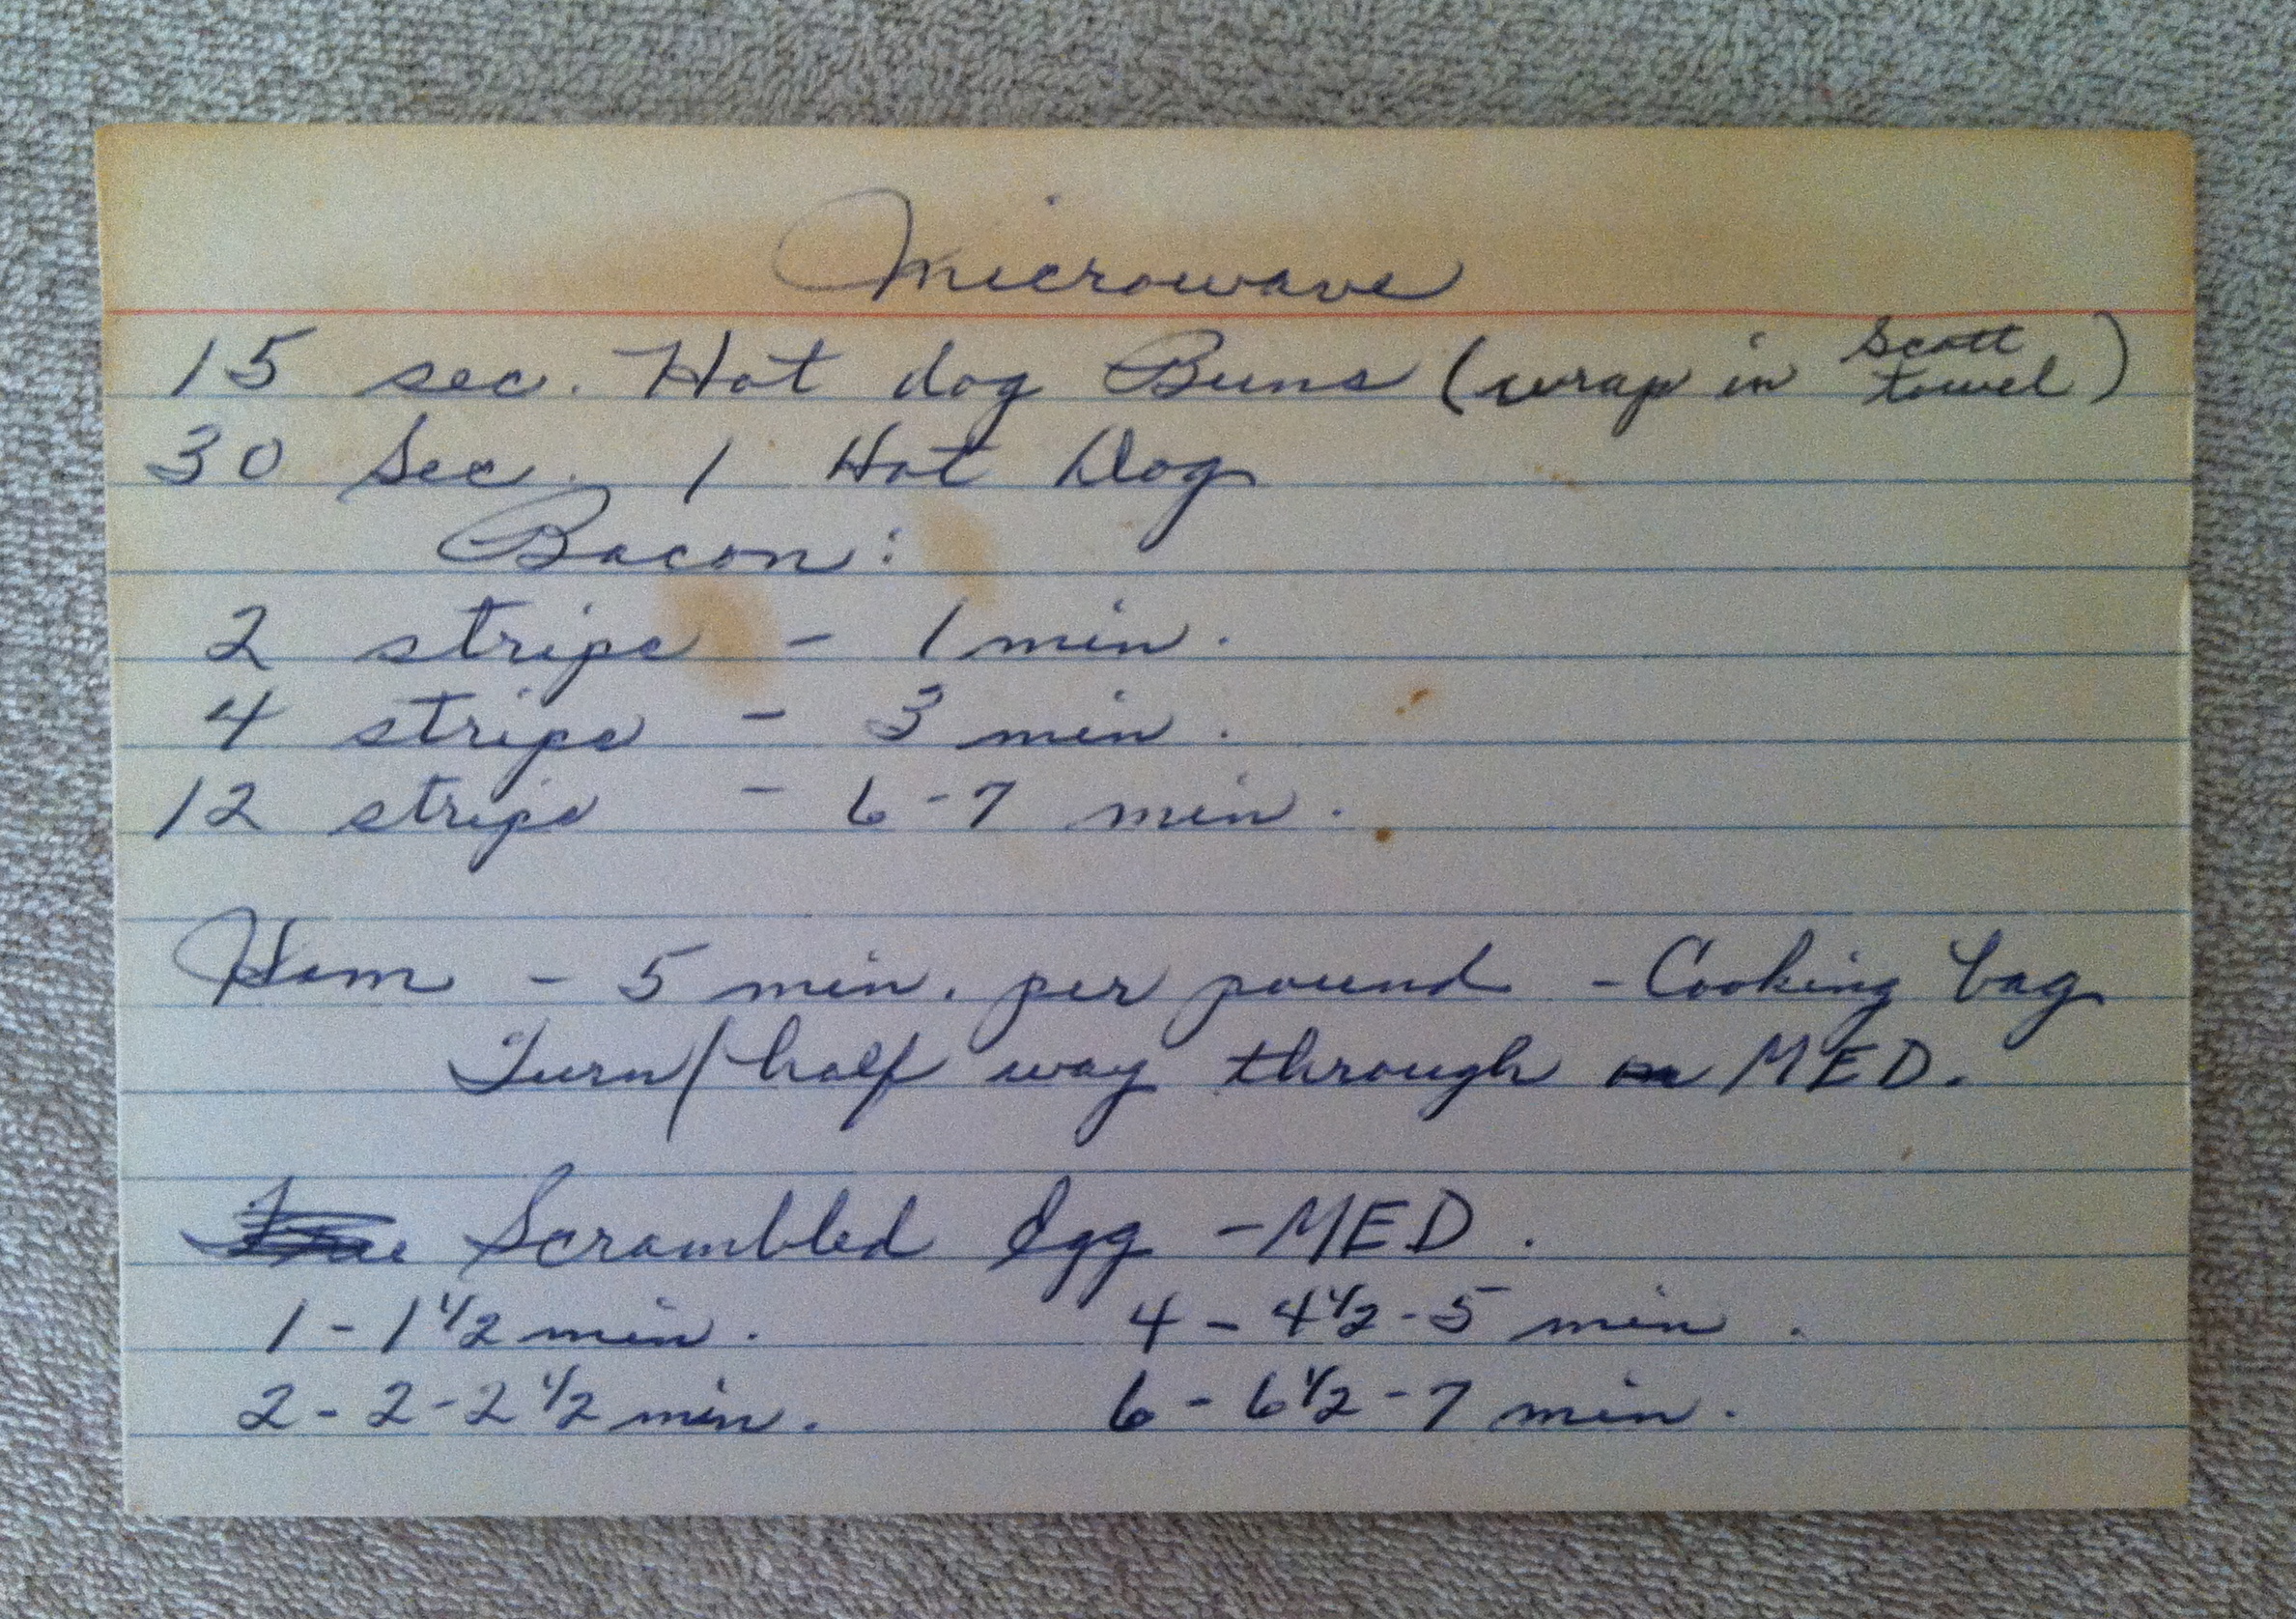 Microwave
15 sec. Hot dog Buns (wrap in Scott towel)
30 Sec. 1 Hot Dog
Bacon:
2 strips - 1 min.
4 strips - 3 min.
12 strips - 6-7 min.
Ham - 5 min. per pound - Cooking bag
Turn/half way through on MED.
Scrambled Egg - MED.
1 - 1 1/2 min. 4 - 4 1/2 - 5 min.
2 - 2 - 2 1/2 min. 6 - 6 1/2 - 7 min.